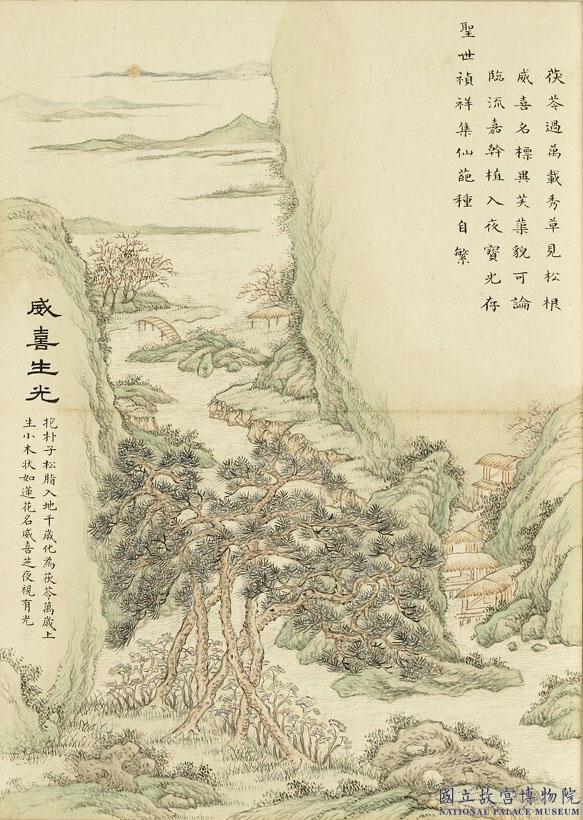 茯苓過萬載秀草見松根
威喜名標異芙蕖貌可論
臨流嘉幹植入夜寶光存
聖世禎祥集仙葩種自繁
威喜生光
抱朴子松脂入地千歲化為茯苓萬歲上
生小木狀如蓮花名威喜芝夜視有光
國立故宮博物院
NATIONAL PALACE MUSEUM